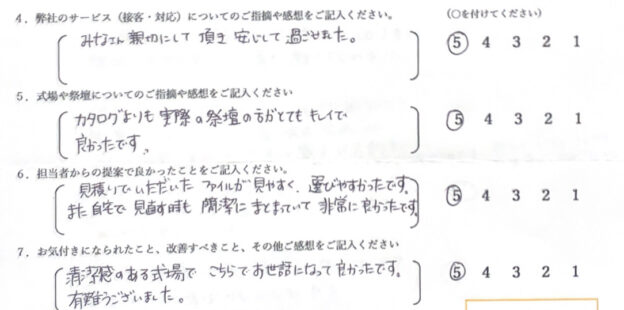 4．弊社のサービス（接客・対応）についてのご指摘や感想をご記入ください。
（○を付けてください）
みなさん親切にして頂き安心して過ごせました。
5 4 3 2 1
5．式場や祭壇についてのご指摘や感想をご記入ください
カタログよりも実際の祭壇の方がとてもキレイで
良かったです。
5 4 3 2 1
6．担当者からの提案で良かったことをご記入ください。
見積りでいただいたファイルが見やすく、選びやすかったです。
また自宅で見直す時も簡潔にまとまっていて非常に良かったです。
5 4 3 2 1
7．お気付きになられたこと、改善すべきこと、その他ご感想をご記入ください
清潔感のある式場でこちらでお世話になって良かったです。
有難うございました。
5 4 3 2 1